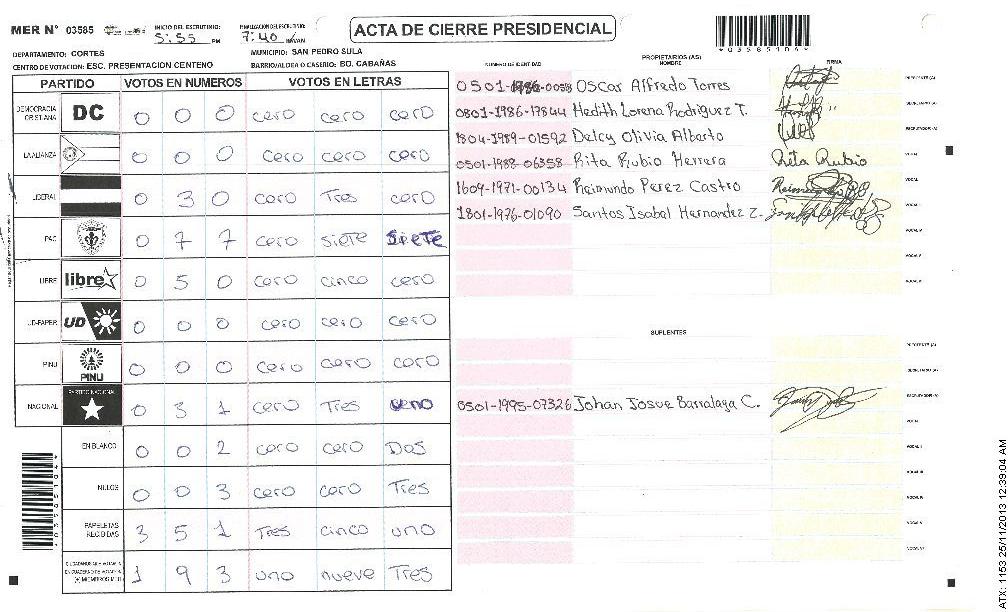 MER N° 03585 INICIO DEL ESCRUTINIO: 5:55 PM FINALIZACION DEL ESCRUTINIO: 7:40 ACTA DE CIERRE PRESIDENCIAL
DEPARTAMENTO: CORTES MUNICIPIO: SAN PEDRO SULA
CENTRO DE VOTACION: ESC. PRESENTACION CENTENO BARRIO/ALDEA O CASERIO: BO. CABAÑAS
PARTIDO VOTOS EN NUMEROS VOTOS EN LETRAS
DEMOCRACIA CRISTIANA DC 0 0 0 cero cero cero
LA ALIANZA 0 0 0 cero cero cero
LIBERAL 0 3 0 cero Tres cero
PAC 0 7 7 cero siete siete
LIBRE libre 0 5 0 cero cinco cero
UD-FAPER UD 0 0 0 cero cero cero
PINU PINU 0 0 0 cero cero cero
NACIONAL PARTIDO NACIONAL 0 3 1 cero Tres uno
EN BLANCO 0 0 2 cero cero Dos
NULOS 0 0 3 cero cero Tres
PAPELETAS RECIBIDAS 3 5 1 Tres cinco uno
1 9 3 uno nueve Tres
PROPIETARIOS (AS)
NUMERO DE IDENTIDAD NOMBRE FIRMA
0501-1986-0058 Oscar Alfredo Torres PRESIDENTE (A)
0801-1986-17844 Hedith Lorena Rodriguez T. SECRETARIO (A)
1804-1989-01592 Delcy Olivia Alberto ESCRUTADOR (A)
0501-1988-06358 Rita Rubio Herrera Rita Rubio VOCAL I
1609-1971-00134 Reimundo Perez Castro
1801-1976-01090 Santos Isabal Hernandez Z.
SUPLENTES
PRESIDENTE (A)
SECRETARIO (A)
0501-1995-07326 Johan Josue Barralaga C. ESCRUTADOR (A)
ATX: 1153 25/11/2013 12:39:04 AM